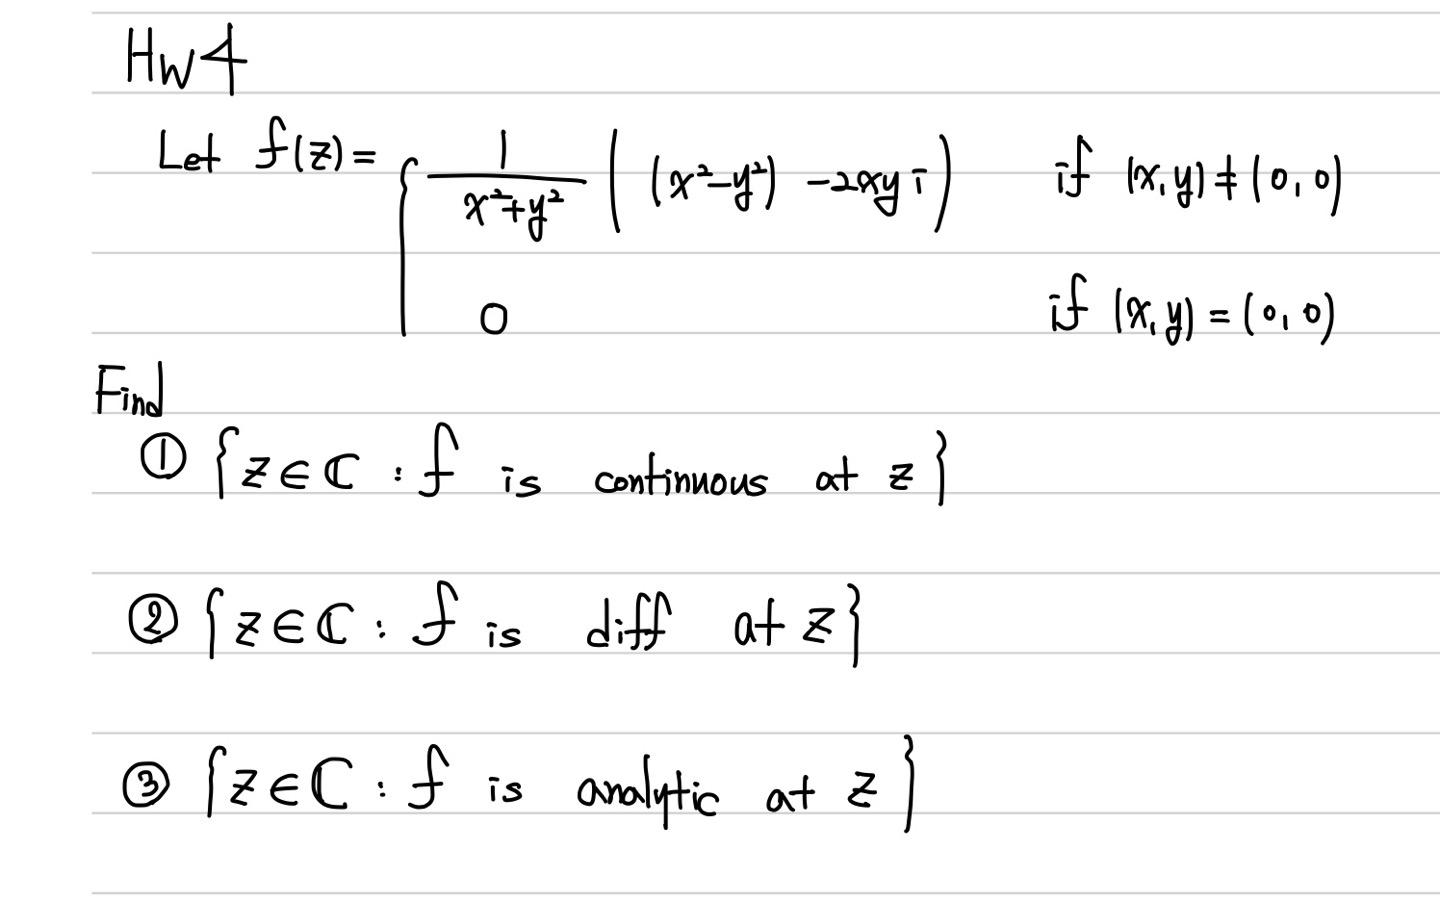 Hw4
Let f(z) = { 1/(x²+y²) ( (x²-y²) -2xyi ) if (x,y) ≠ (0,0)
0 if (x,y) = (0,0)
Find
① {z∈ℂ : f is continuous at z}
② {z∈ℂ : f is diff at z}
③ {z∈ℂ : f is analytic at z}